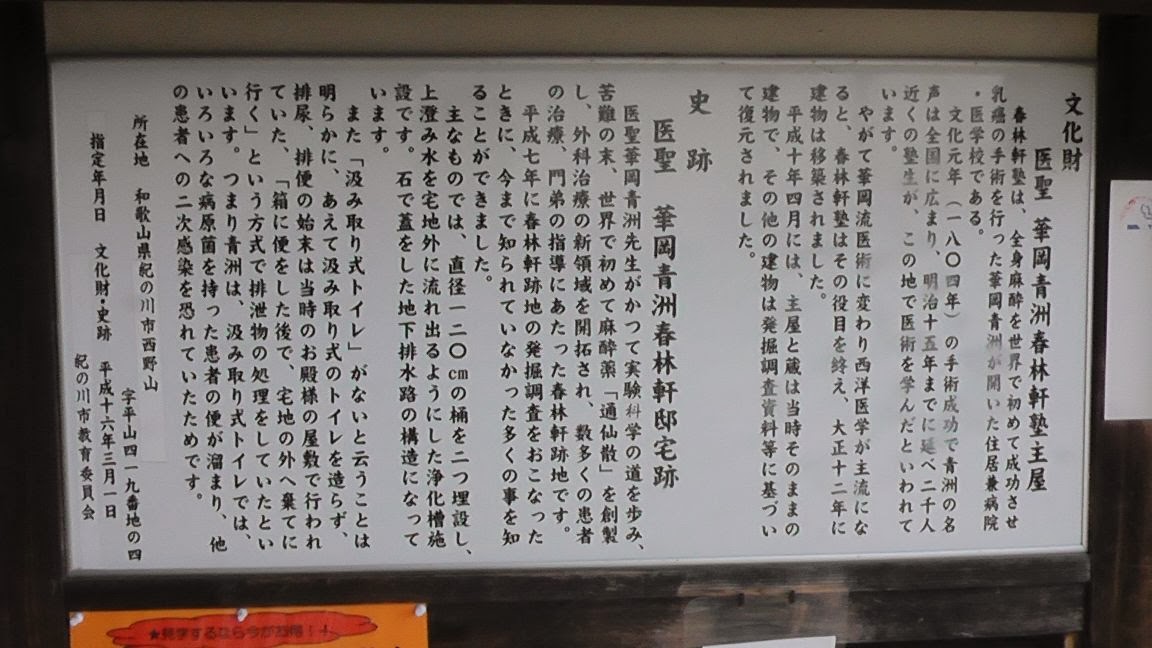 文化財
医聖 華岡青洲春林軒塾主屋
春林軒塾は、全身麻酔を世界で初めて成功させ
乳癌の手術を行った華岡青洲が開いた住居兼病院
・医学校である。
文化元年(一八〇四年)の手術成功で青洲の名
声は全国に広まり、明治十五年までに延べ二千人
近くの塾生が、この地で医術を学んだといわれて
います。
やがて華岡流医術に変わり西洋医学が主流にな
ると、春林軒塾はその役目を終え、大正十二年に
建物は移築されました。
平成十年四月には、主屋と蔵は当時そのままの
建物で、その他の建物は発掘調査資料等に基づい
て復元されました。
史跡
医聖 華岡青洲春林軒邸宅跡
医聖華岡青洲先生がかつて実験科学の道を歩み、
苦難の末、世界で初めて麻酔薬「通仙散」を創製
し、外科治療の新領域を開拓され、数多くの患者
の治療、門弟の指導にあたった春林軒跡地です。
平成七年に春林軒跡地の発掘調査をおこなった
ときに、今まで知られていなかった多くの事を知
ることができました。
主なものでは、直径一二〇cmの桶を二つ埋設し、
上澄み水を宅地外に流れ出るようにした浄化槽施
設です。石で蓋をした地下排水路の構造になって
います。
また「汲み取り式トイレ」がないと云うことは
明らかに、あえて汲み取り式のトイレを造らず、
排尿、排便の始末は当時のお殿様の屋敷で行われ
ていた、「箱に便をした後で、宅地の外へ棄てに
行く」という方式で排泄物の処理をしていたとい
います。つまり青洲は、汲み取り式トイレでは、
いろいろな病原菌を持った患者の便が溜まり、他
の患者への二次感染を恐れていたためです。
所在地 和歌山県紀の川市西野山
字平山四一九番地の四
指定年月日 文化財・史跡 平成十六年三月一日
紀の川市教育委員会
★見学するなら今がお得!!